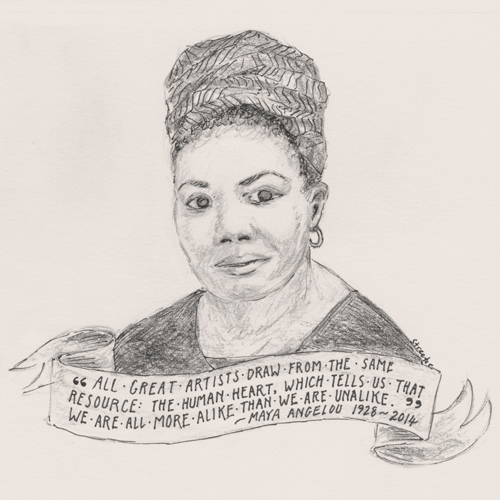 “ ALL · GREAT · ARTISTS · DRAW · FROM · THE · SAME
RESOURCE: THE · HUMAN · HEART, WHICH · TELLS · US · THAT
WE · ARE · ALL · MORE · ALIKE · THAN · WE · ARE · UNALIKE. ”
~ MAYA ANGELOU 1928~2014